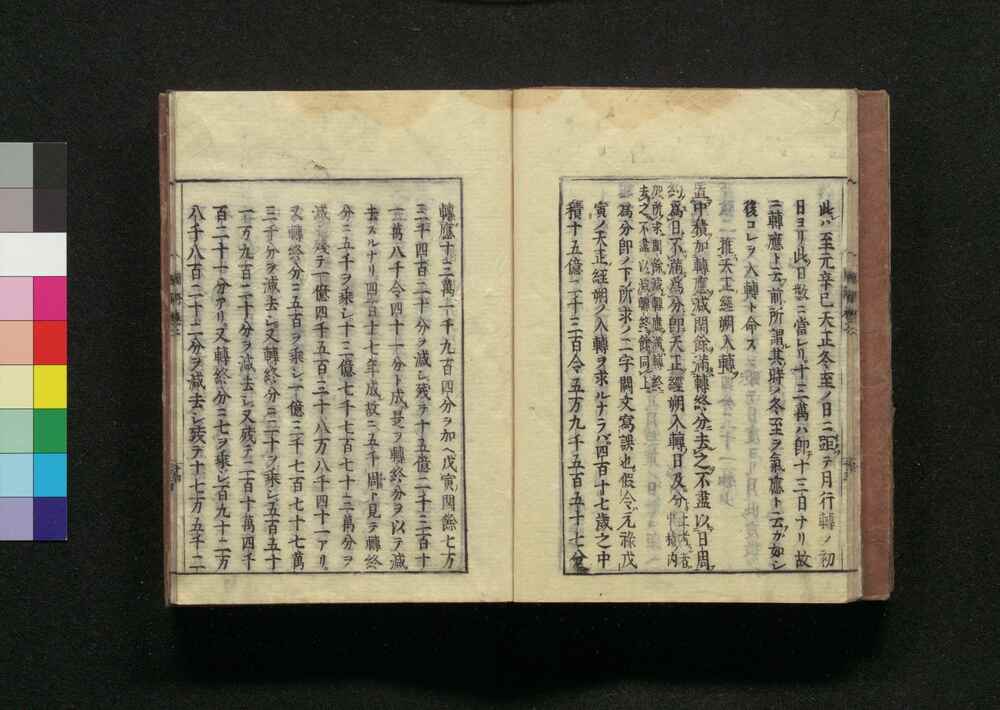 此ハ至元辛巳天正冬至ノ日ニ距テ月行轉ノ初
日ヨリ此日数ニ當レリ十三萬ハ即十三日ナリ故
ニ轉應ト云前所謂其時ノ冬至ヲ氣應ト云カ如シ
後コレヲ入轉ト命ス
推天正經朔入轉
置中積加轉應減閏餘滿轉終分去之不盡以日周
約為日不滿為分即天正經朔入轉日及分
為分即ノ下所求ノ二字闕文寫誤也假令元祿戊
寅ノ天正經朔ノ入轉ヲ求ルナラバ四百十七歳之中
積十五億二千三百令五万九千五百五十七分
轉應十三萬一千九百四分ヲ加ヘ戊寅閏餘七万
三千四百二十分ヲ減シ残テ十五億二千三百十
一萬八千令四十一分ト成是ヲ轉終分ヲ以テ滿
去スルナリ四百十七年成故ニ五千周ト見テ轉終
分ニ五千ヲ乘シ十三億七千七百七十三萬分ヲ
減シ残テ一億四千五百三十八万八千四十一アリ
又轉終分ニ五百ヲ乘シ一億三千七百七十七萬
三千分ヲ減去シ又轉終分ニ二十ヲ乘シ五百五十
一万九百二十分ヲ減去シ又残テ二百十萬四千
百二十一分アリ又轉終分ニ七ヲ乘シ百九十二万
八千八百二十二分ヲ減去シ残テ十七万五千二